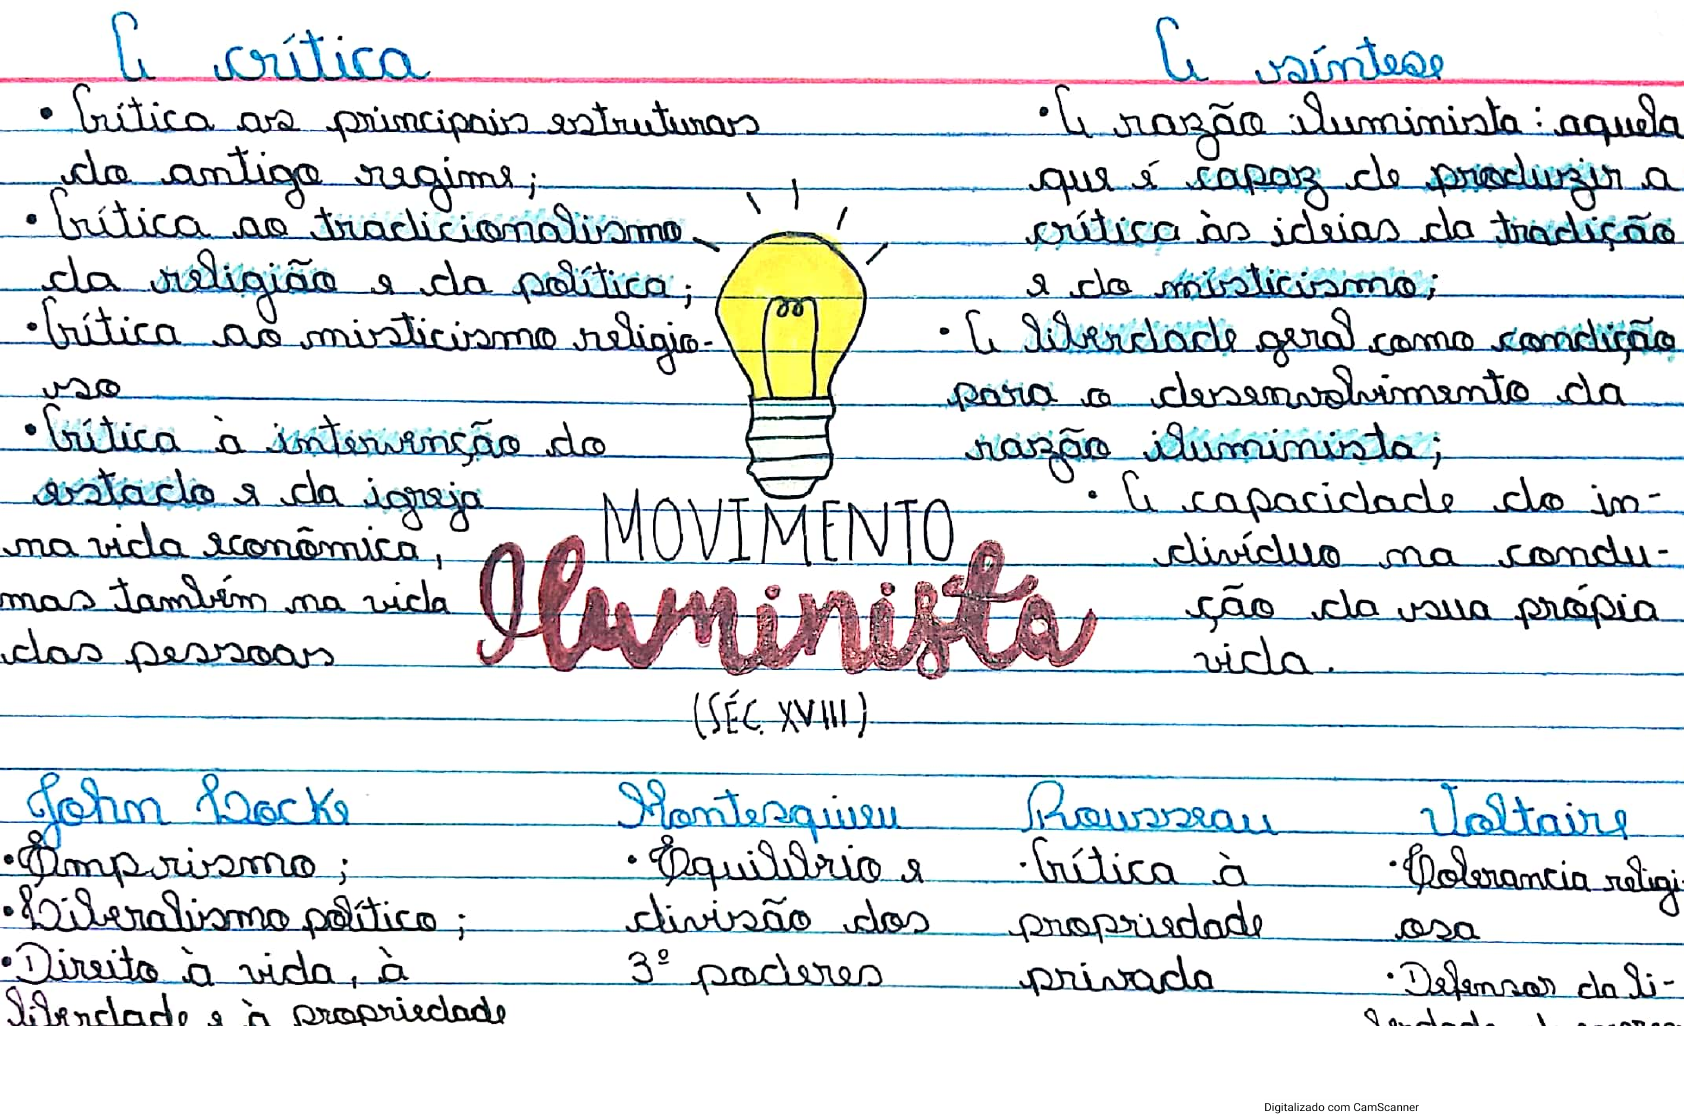 A crítica
• Crítica as principais estruturas
do antigo regime;
• Crítica ao tradicionalismo
da religião e da política;
• Crítica ao misticismo religio-
so
• Crítica à intervenção do
estado e da igreja
na vida econômica,
mas também na vida
das pessoas
A síntese
• A razão iluminista: aquela
que é capaz de produzir a
crítica às ideias da tradição
e do misticismo;
• A liberdade geral como condição
para o desenvolvimento da
razão iluminista;
• A capacidade do in-
divíduo na condu-
ção da sua própia
vida.
MOVIMENTO
Iluminista
(SÉC. XVIII)
John Locke
• Empirismo;
• Liberalismo político;
• Direito à vida, à
liberdade e à propriedade
Montesquieu
• Equilíbrio e
divisão dos
3º poderes
Rousseau
• Crítica à
propriedade
privada
Voltaire
• Tolerancia religi
osa
• Defensor da li-
Digitalizado com CamScanner